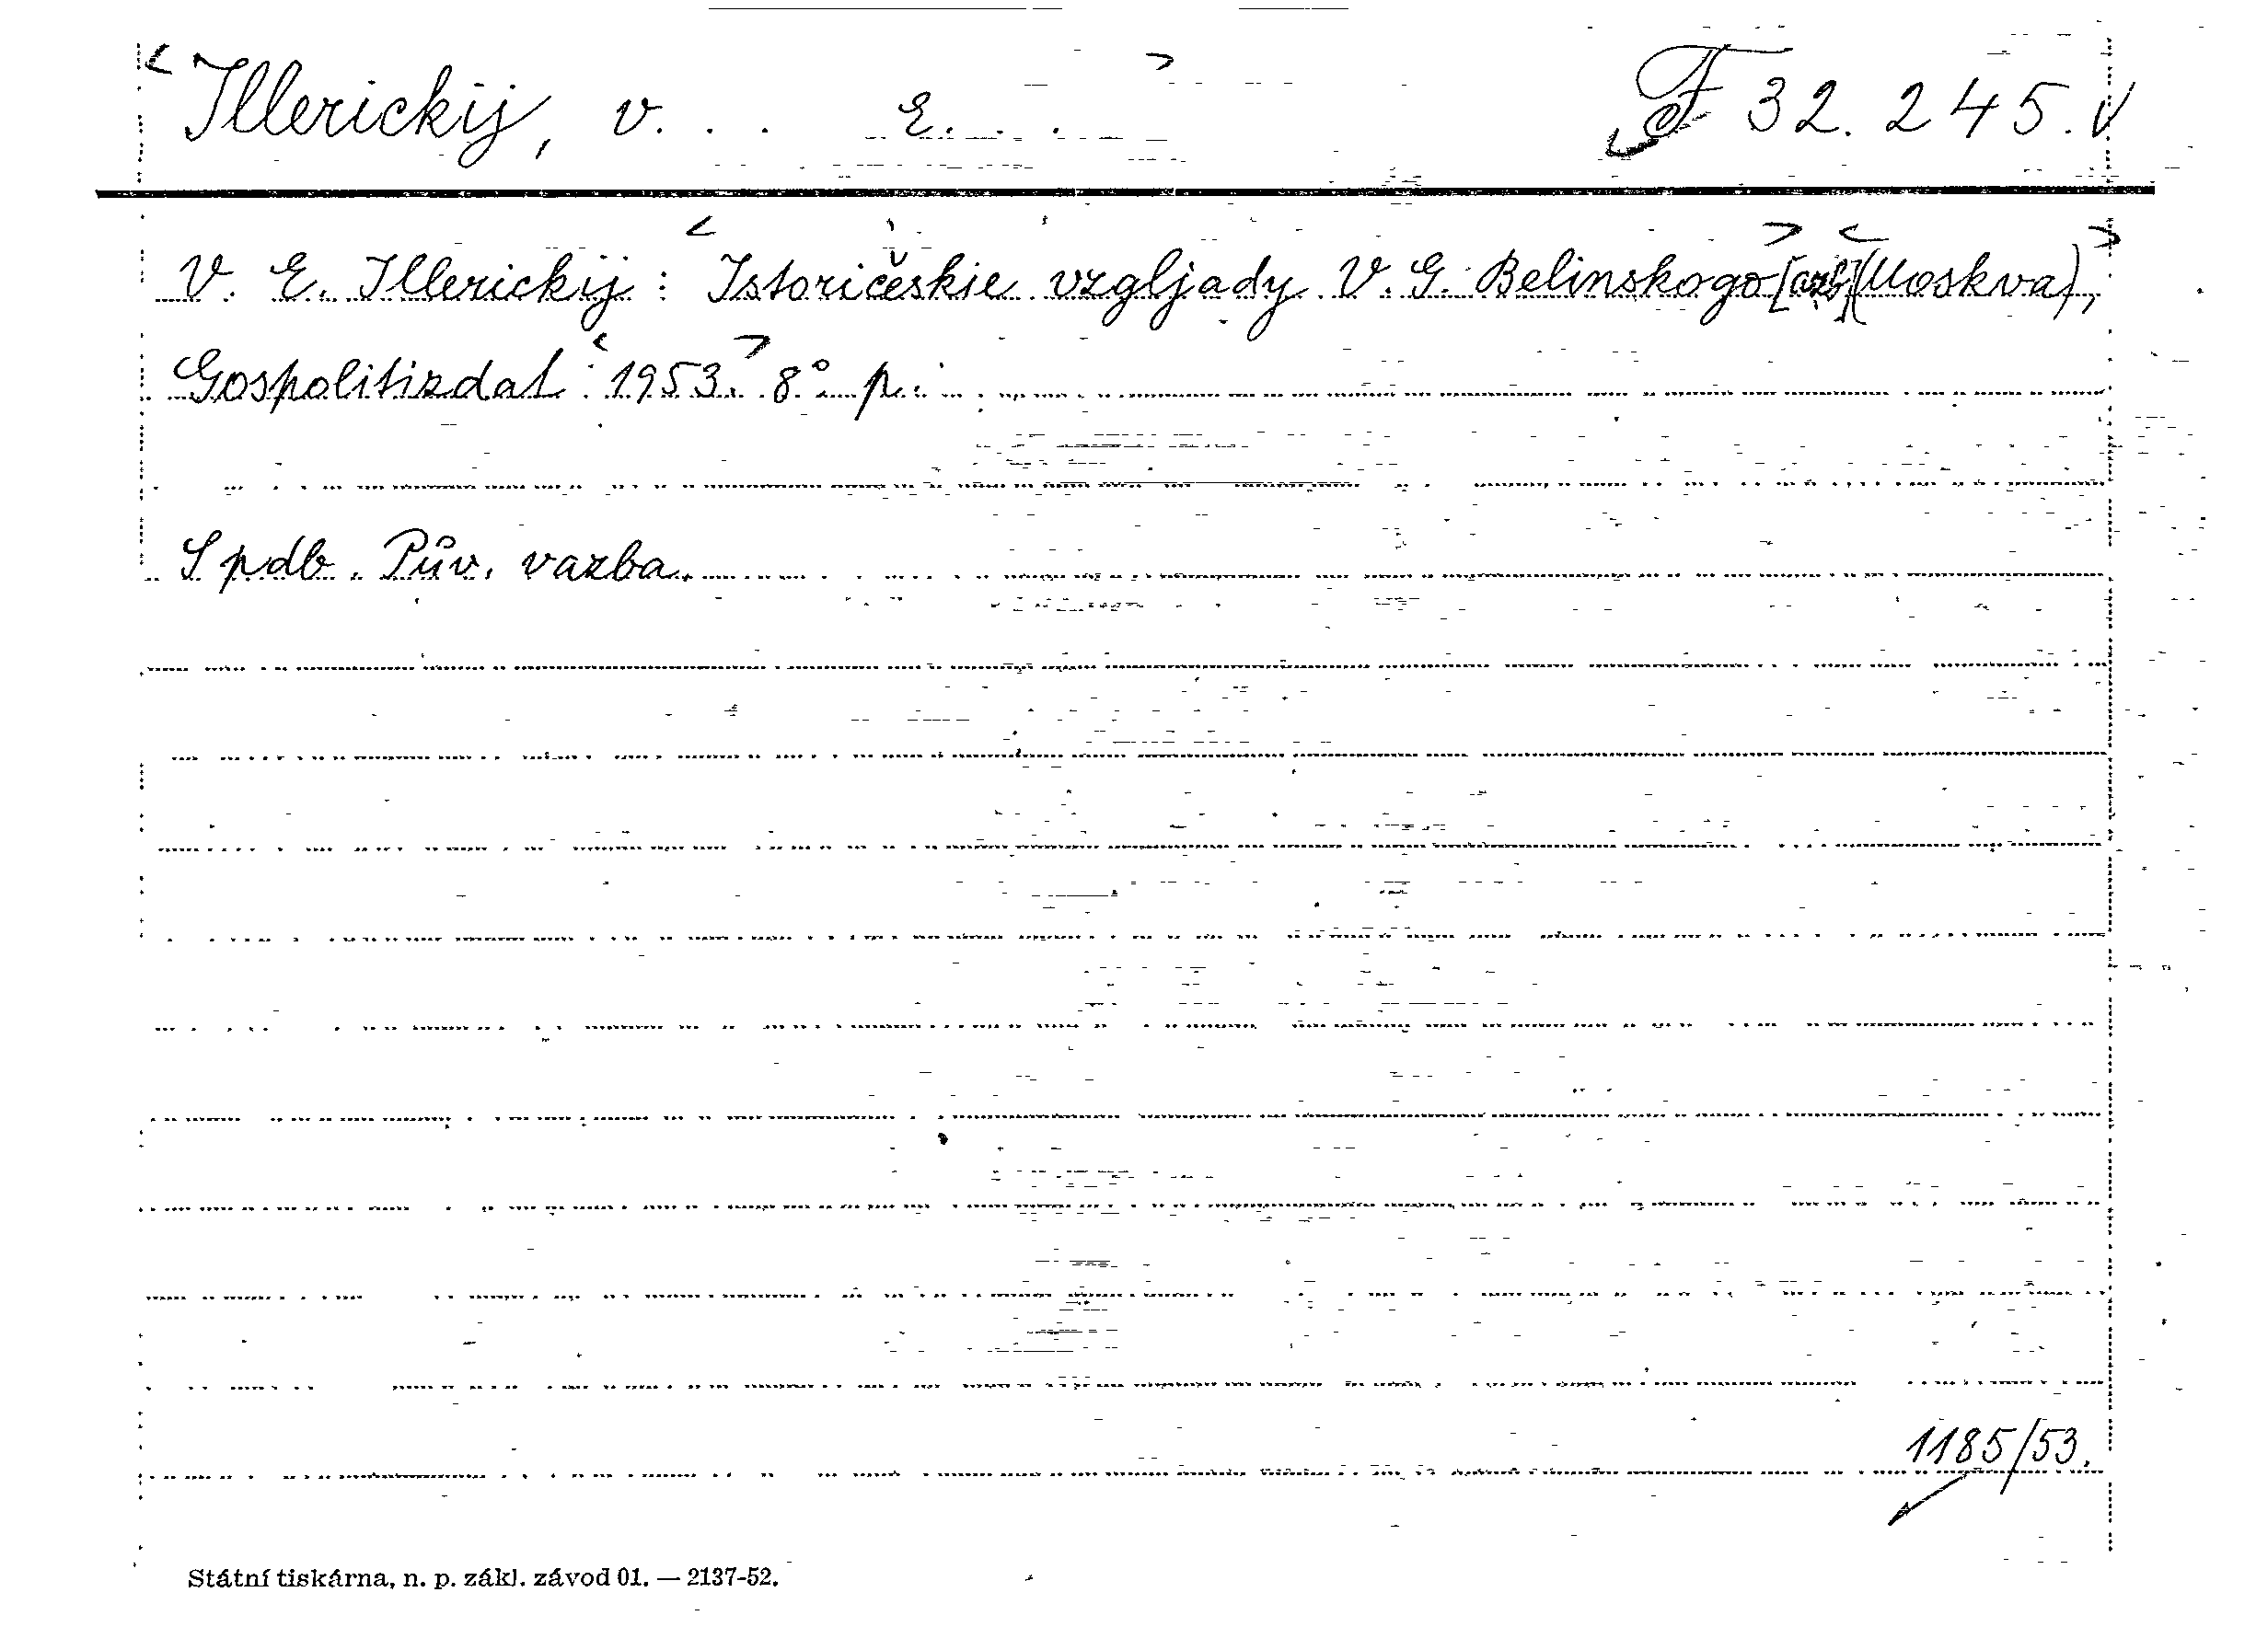 Illerickij, V. . . E. . . F 32.245.
V. E. Illerickij : Istoričeskie vzgljady V. G. Belinskogo [azb] (Moskva),
Gospolitizdat 1953. 8° p.
S pdb. Pův. vazba.
1185/53.
Státní tiskárna, n. p. zákl. závod 01. — 2137-52.